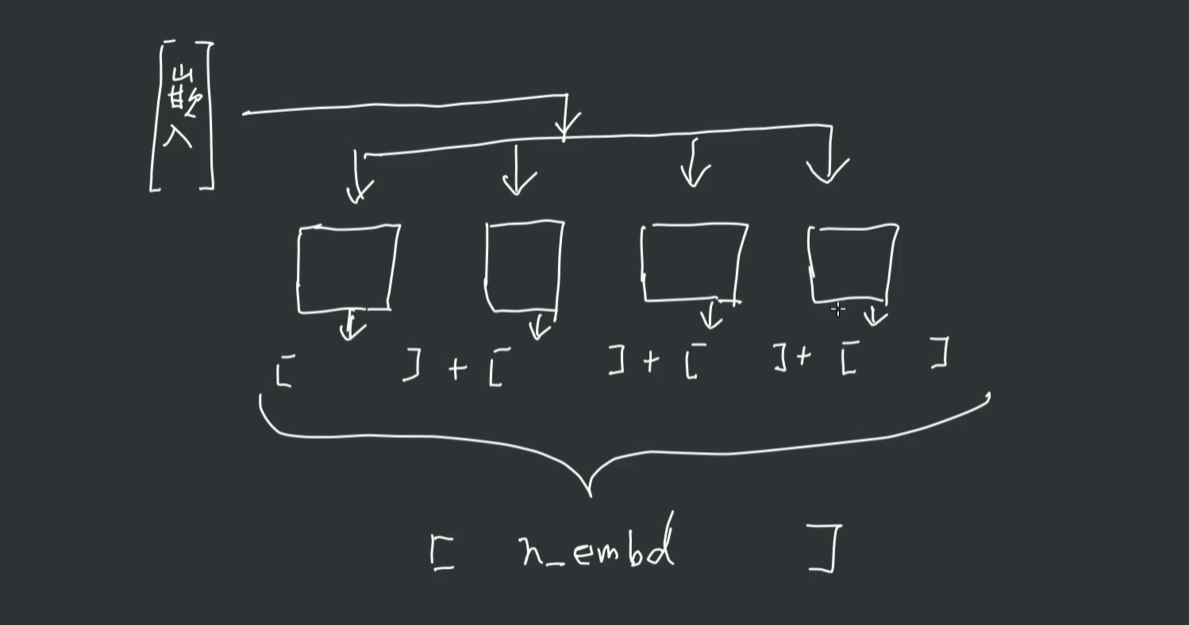 [嵌入]
[ ] + [ ] + [ ] + [ ]
[ n_embd ]